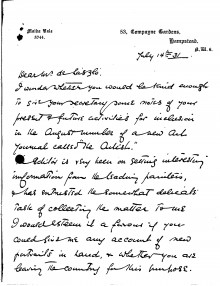 Maida Vale
53, Compayne Gardens,
Hampstead,
N.W.6.
July 14th 31
Dear Mr de László.
I wonder whether you would be kind enough
to give your secretary some notes of your
present & future activities for inclusion
in the August number of a new Art
Journal called "The Artist."
Editor is very keen on getting interesting
information from the leading painters,
& has entrusted the somewhat delicate
task of collecting the matter to me
I would esteem it a favour if you
could give me any account of new
portraits in hand, & whether you are
leaving the country for this purpose.